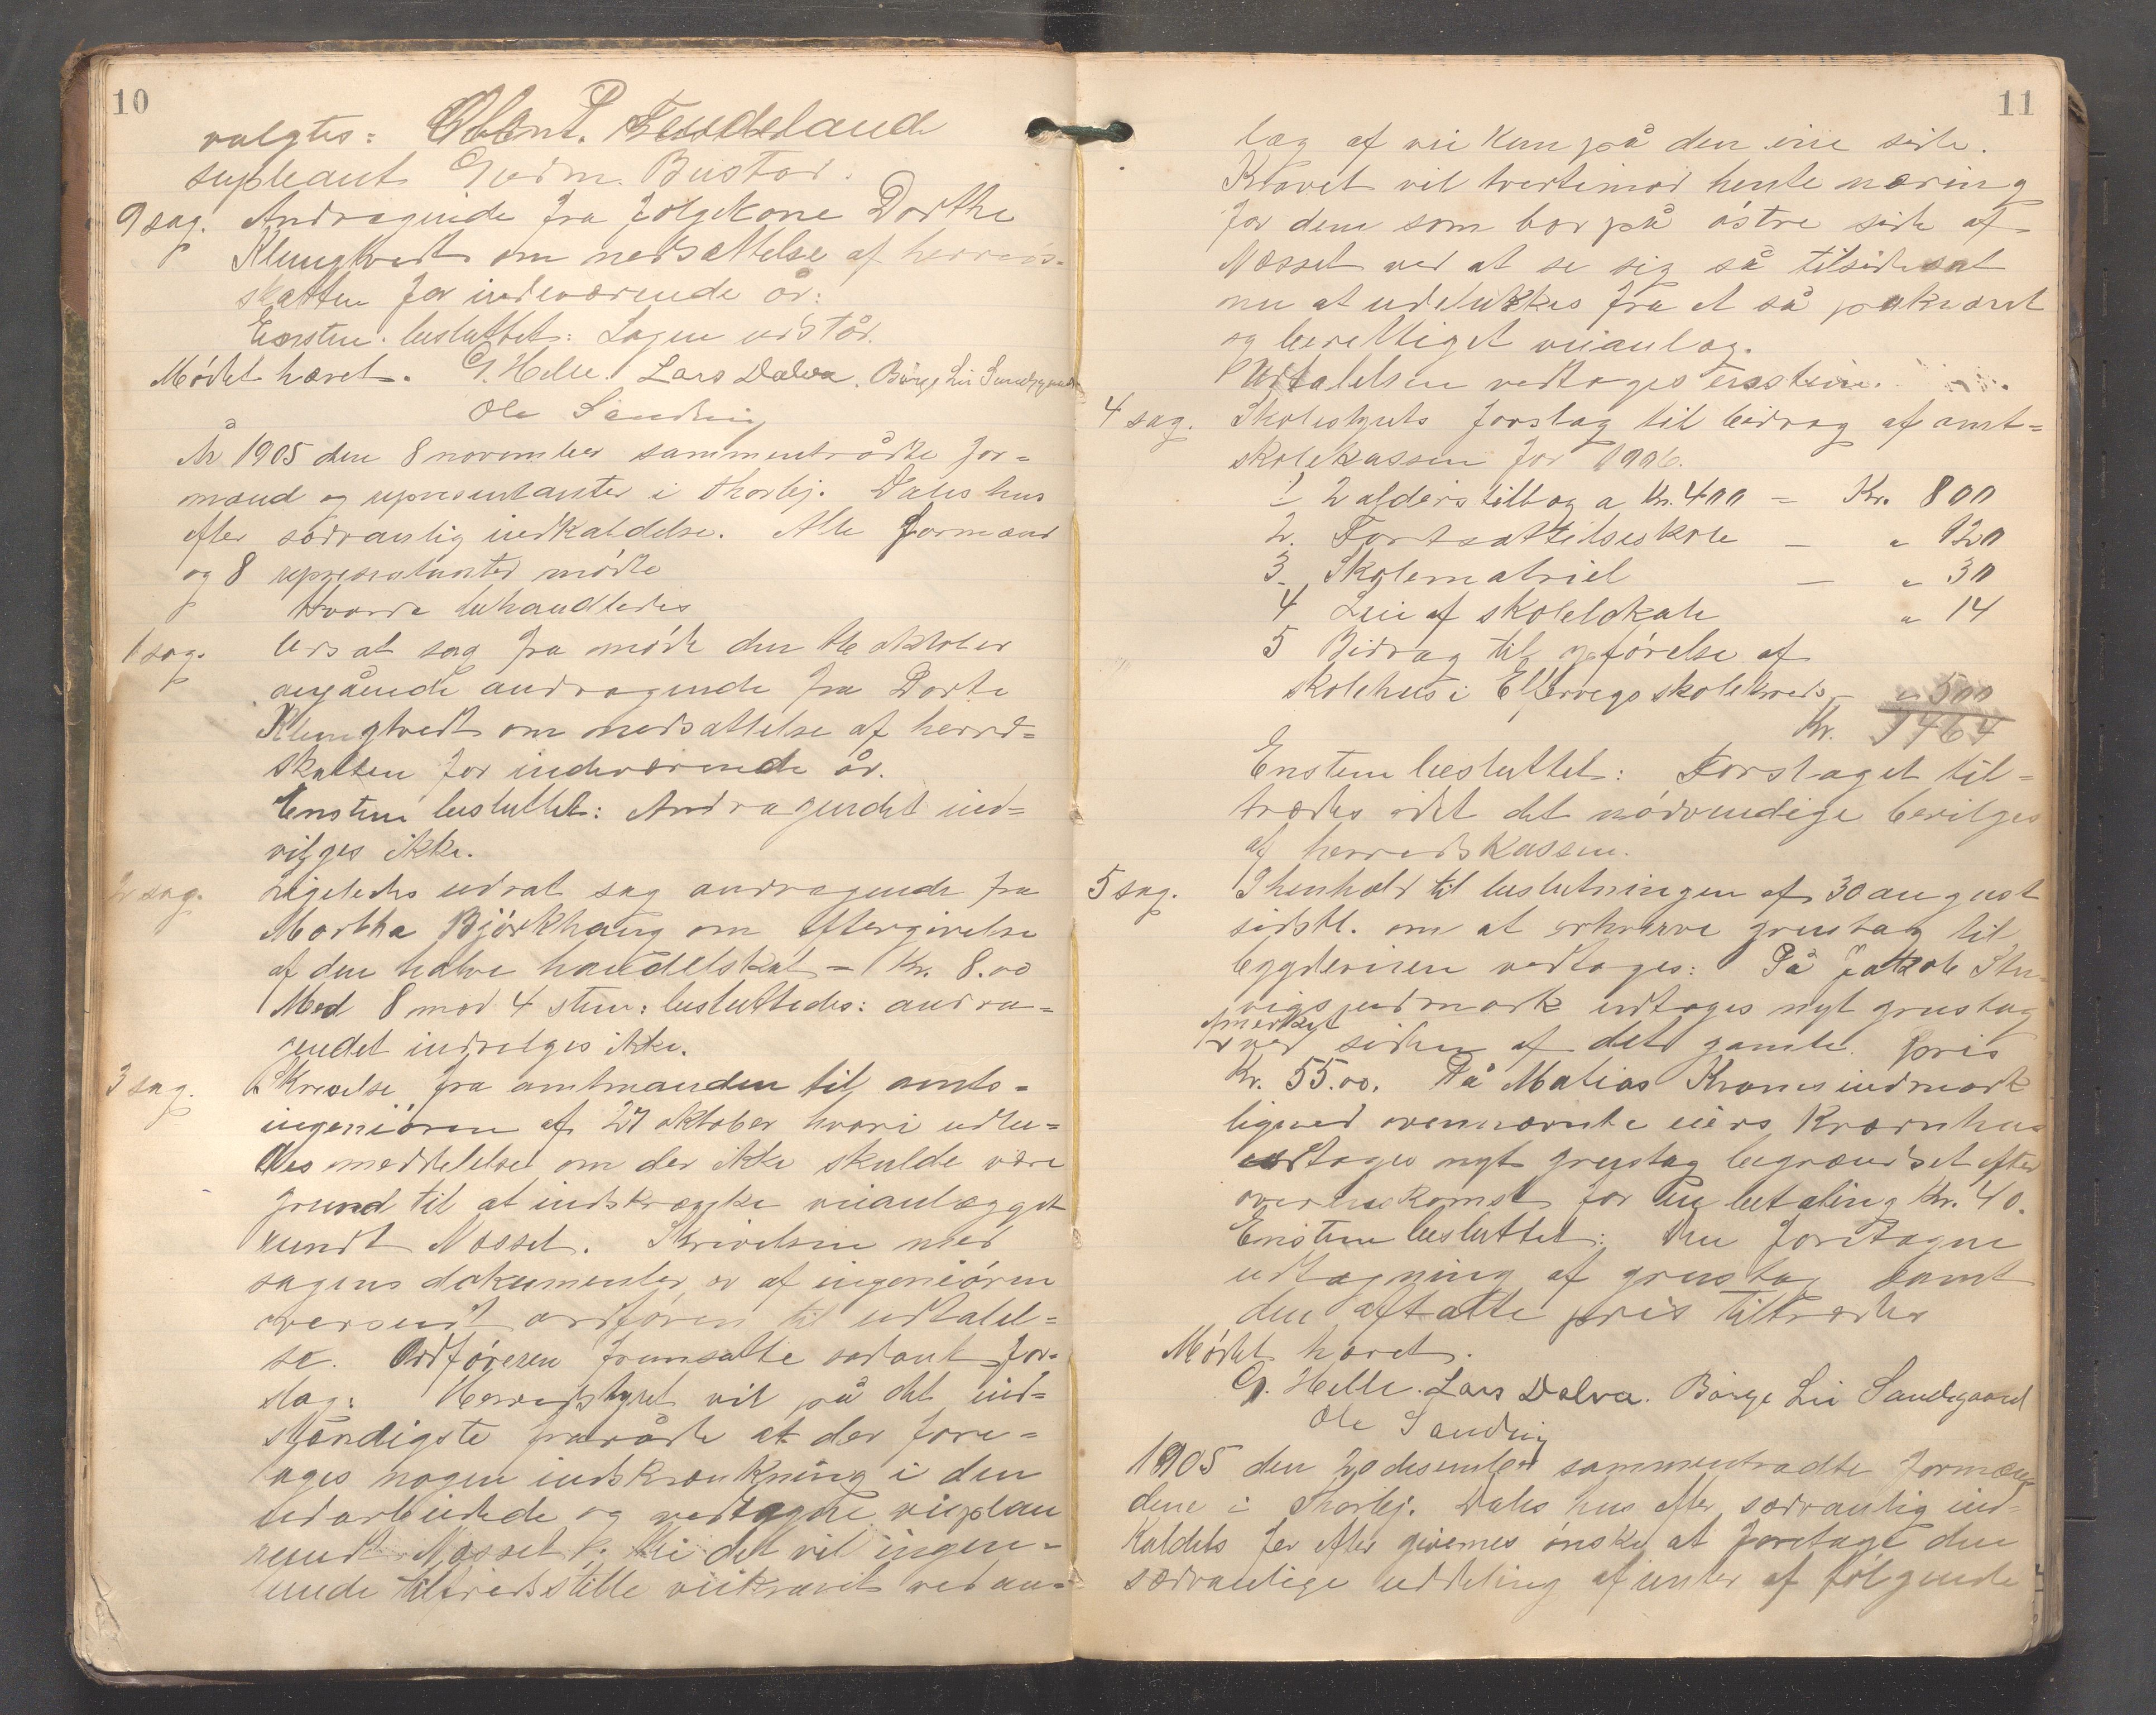 10
valgtes: P. Tendeland
supleant Gudm. Bustad.
9 sag. Andragende fra følgekone Dorthe
Klungtvedt om nedsættelse af herreds-
skatten for indeværende år:
Enstem. besluttet: Sagen udstår.
Mødet hævet. G. Helle. Lars Dalva. Børge Lii Sandsgaard
Ole Sandvig
År 1905 den 8 november sammentrådte for-
mænd og repræsentanter i Thorbj. Dales hus
efter sædvanlig indkaldelse. Alle formænd
og 8 representanter mødte
Hvorda behandledes
1 sag. Udsat sag fra møde den 16 oktober
angående andragende fra Dorte
Klungtvedt om nedsættelse af herred-
skatten for indeværende år.
Enstem besluttet: Andragendet ind-
vilges ikke.
2 sag. Ligeledes udsat sag andragende fra
Martha Bjørkhaug om eftergivelse
af den halve handelskat = Kr. 8.00
Med 8 mod 4 stem: besluttedes: andra-
gendet indvilges ikke.
3 sag. Skrivelse fra amtmanden til amts-
ingeniøren af 27 oktober hvori udbe-
des meddelelse om der ikke skulde være
grund til at indskrænke veianlægget
rundt Næsset. Skrivelsen med
sagens dokumenter er af ingeniøren
oversendt ordføren til udtalel-
se. Ordføreren fremsatte sådant for-
slag: Herredstyret vil på det ind-
stændigste fraråde at der fore-
tages nogen indskrænkning i den
udarbeidede og vedtagne veiplan
rundt Næsset. Thi det vil ingen-
lunde tilfredsstille veikravet ved an-
11
læg af vei kun på den ene side.
Kravet vil tvertimod hente næring
for dem som bor på østre side af
Næsset ved at se sig så tilsidesat
nu at udelukkes fra et så påkrævet
og berettiget veianlæg.
Udtalelsen vedtoges enstem.
4 sag. Skolestyrets forslag til bidrag af amt-
skolekassen for 1906.
1 2 alderstillæg a kr. 400 = Kr. 800
2. Fortsættelseskole — " 120
3. Skolematriel — " 30
4 Leie af skolelokale " 14
5 Bidrag til opførelse af
skolehus i Elfervegs skolekreds — " 500
Kr. 1464
Enstem besluttet: Forslaget til-
trædes idet det nødvendige bevilges
af herredskassen.
5 sag. I henhold til beslutningen af 30 august
sidstl. om at erhverve grustag til
bygdeveien vedtages: På Jakob Stu-
vigs indmark udtages nyt grustag
ved siden af det gamle. Pris
Kr. 55.00. På Matias Kroms indmark
ligeved ovennævnte eiers Kværnhus
udtages nyt grustag begrændset efter
overenskomst for en betaling Kr. 40.
Enstem besluttet: Den foretagne
udtagning af grustag samt
den aftalte pris tiltrædes
Mødet hævet.
G. Helle. Lars Dalva. Børge Lii Sandsgaard
Ole Sandvig
1905 den 20 desember sammentradte formæn-
dene i Thorbj. Dales hus efter sædvanlig ind-
kaldels for efter givernes ønske at foretage den
sædvanlige uddeling af renter af følgende